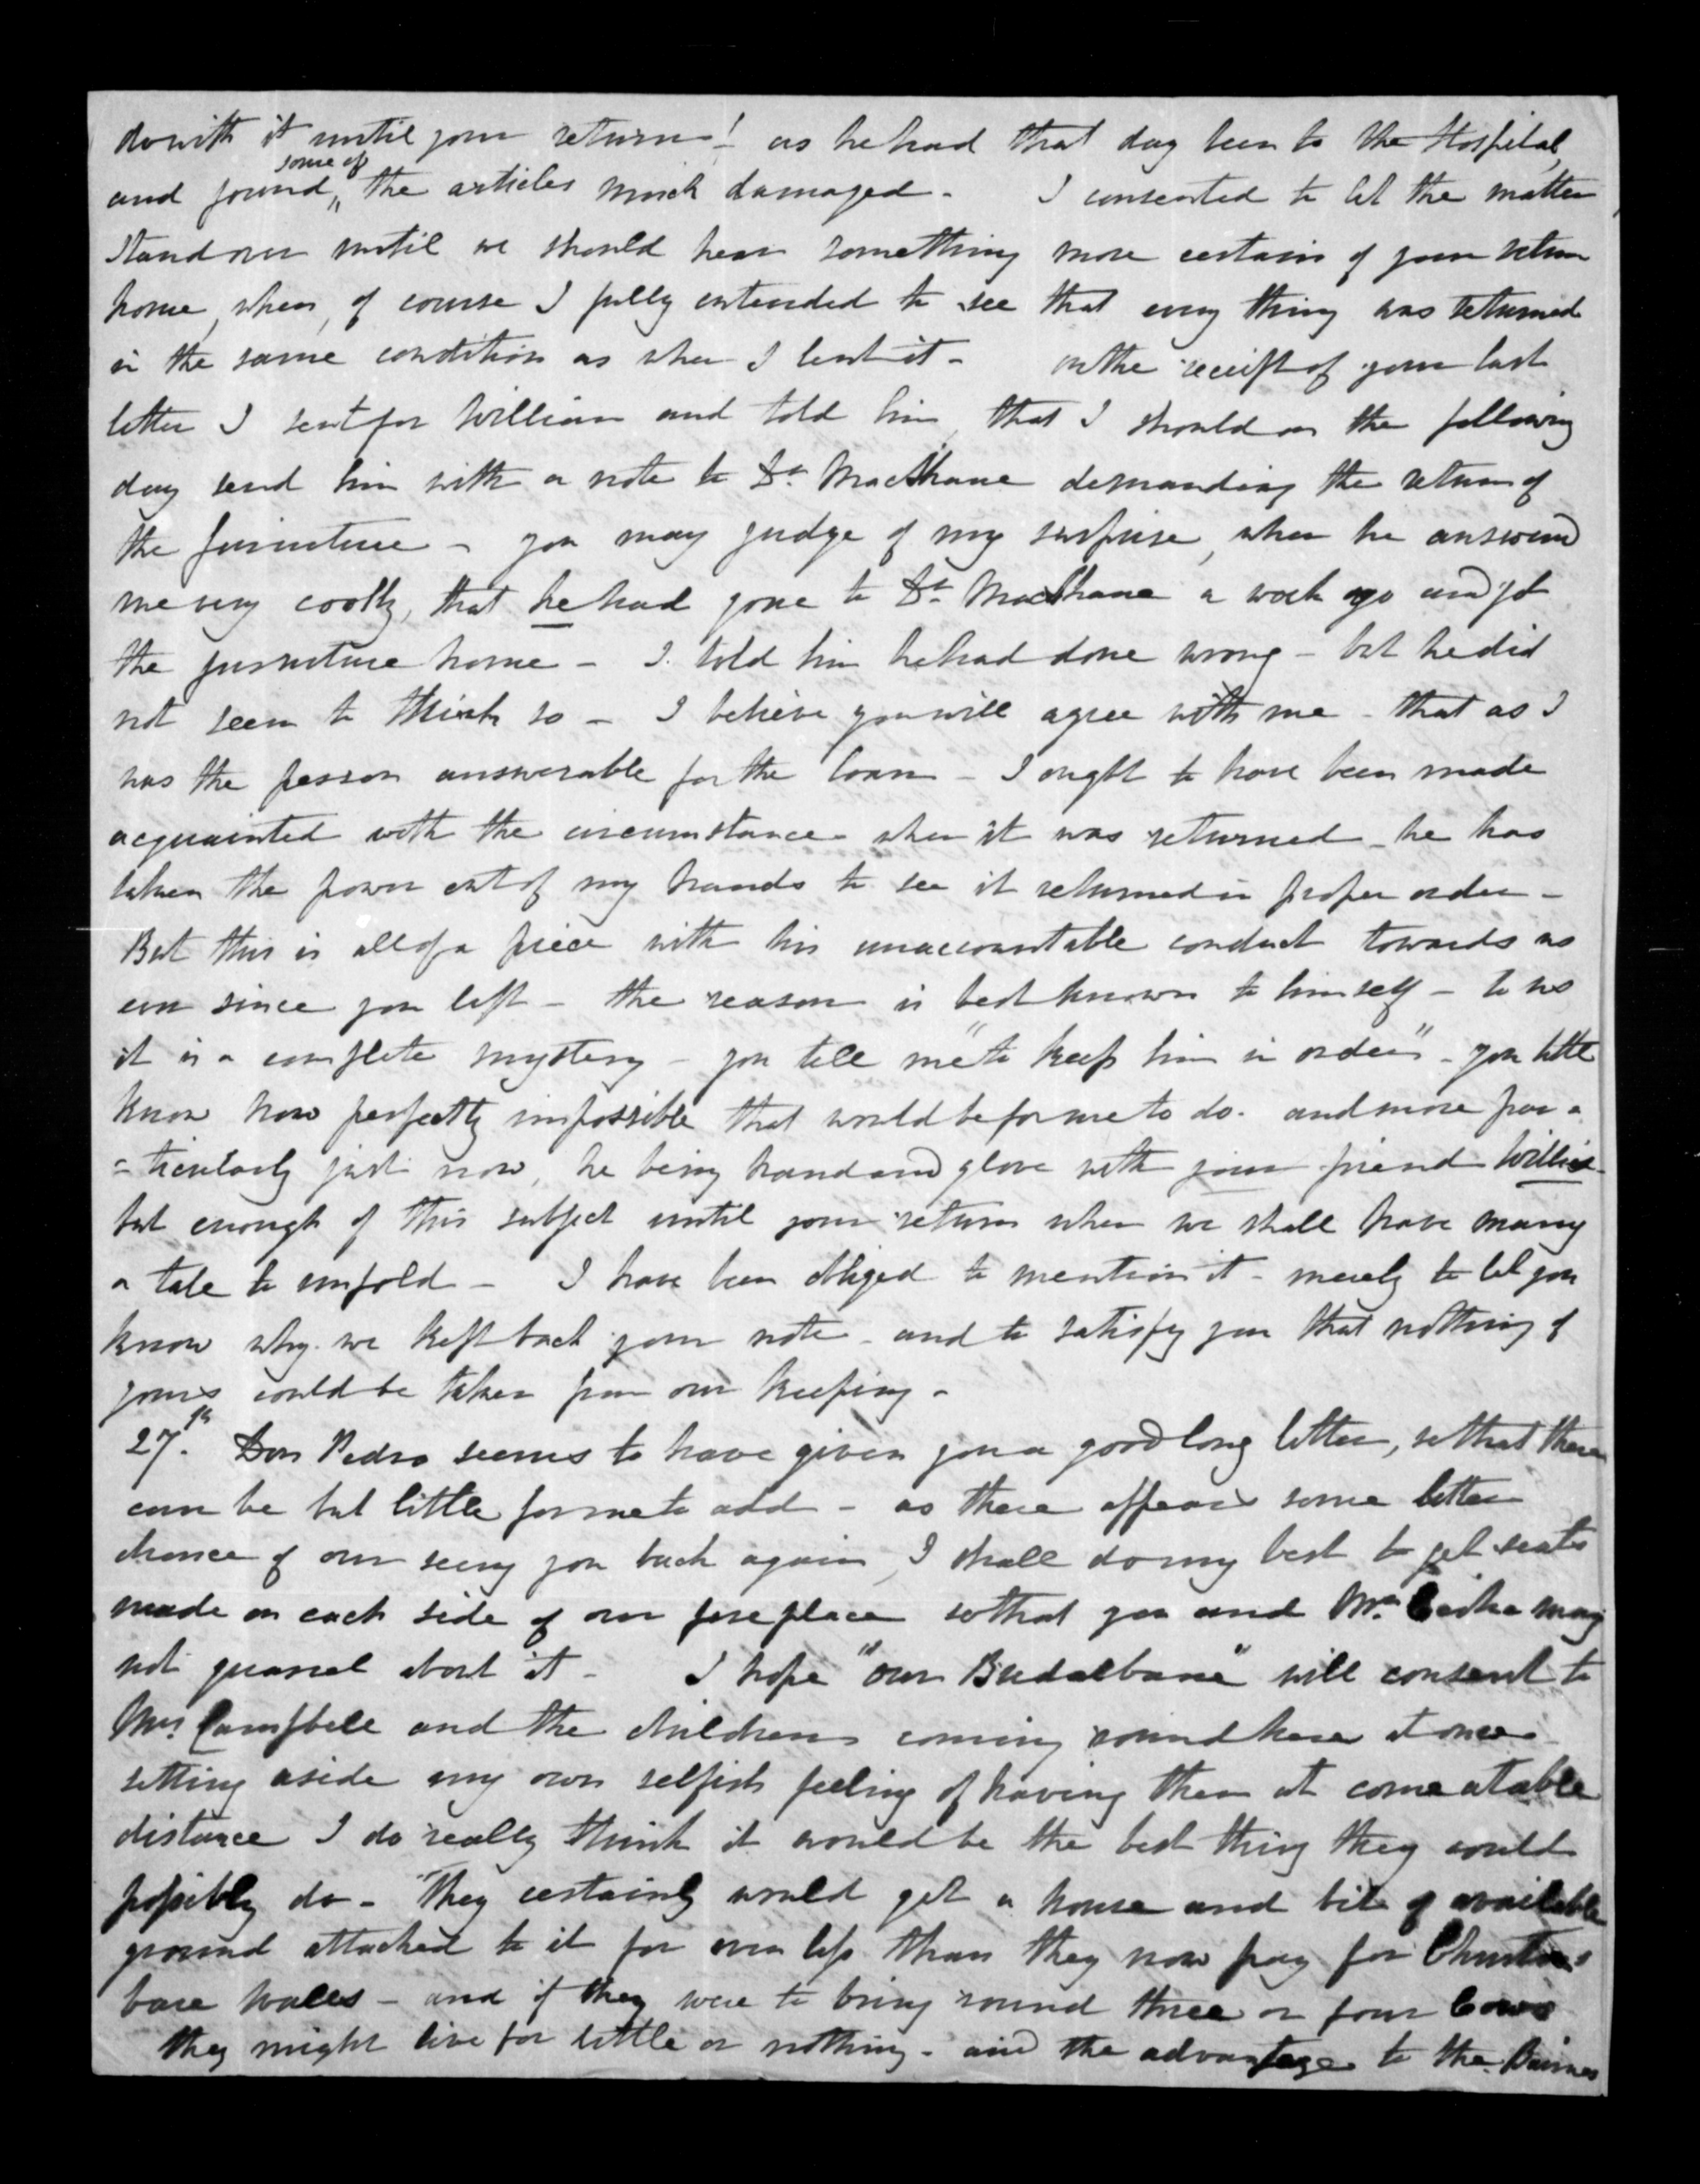 do with it until your return! as he had that day been to the Hospital,
and found some of the articles much damaged - I consented to let the matter
stand over until we should hear something more certain of your return
home, when, of course I fully intended to see that every thing was returned
in the same condition as when I lent it - on the receipt of your last
letter I sent for William and told him, that I should on the following
day send him with a note to Dr. MacShane demanding the return of
the furniture - you may judge of my surprise, when he answered
me very coolly, that he had gone to Dr. MacShane a week ago and got
the furniture home - I told him he had done wrong - but he did
not seem to think so - I believe you will agree with me - that as I
was the person answerable for the loan - I ought to have been made
acquainted with the circumstance when it was returned - he has
taken the power out of my hands to see it returned in proper order -
But this is all of a piece with his unaccountable conduct towards us
ever since you left - the reason is best known to himself - to us
it is a complete mystery - you tell me "to keep him in order" - you little
know how perfectly impossible that would be for me to do - and more par-
=ticularly just now, he being hand and glove with your friend Willie -
but enough of this subject until your return when we shall have many
a tale to unfold - I have been obliged to mention it - merely to let you
know why we kept back your note - and to satisfy you that nothing of
yours could be taken from our keeping -
27.th Don Pedro seems to have given you a good long letter, so that there
can be but little for me to add - as there appears some better
chance of our seeing you back again, I shall do my best to get seats
made on each side of our fireplace so that you and Mrs. may
not quarrel about it - I hope "our Bredalbane" will consent to
Mrs. Campbell and the children coming round here at once -
setting aside my own selfish feeling of having them at come atable
distance I do really think it would be the best thing they could
possibly do - They certainly would get a house and bit of available
ground attached to it for even less than they now pay for
bare walls - and if they were to bring round three or four Cows
they might live for little or nothing - and the advantage to the Bairnes